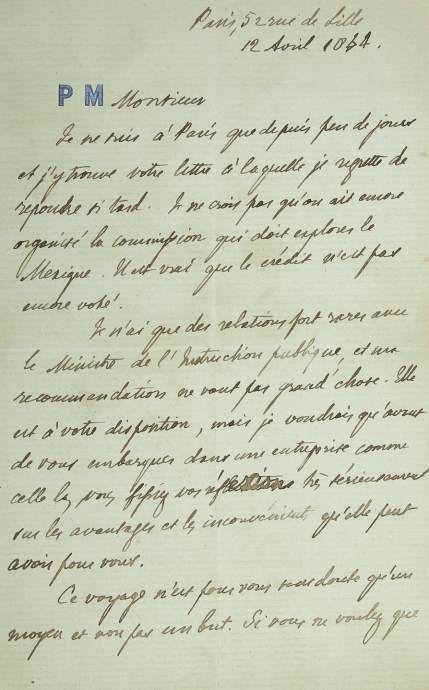 Paris, 52 rue de Lille
12 Avril 1864.
P M Monsieur
Je ne suis à Paris que depuis peu de jours
et j'y trouve votre lettre à laquelle je regrette de
repondre si tard. Je ne crois pas qu'on ait encore
organisé la commission qui doit explorer le
Mexique. Il est vrai que le crédit n'est pas
encore voté.
Je n'ai que des relations fort rares avec
le Ministre de l'Instruction publique, et ma
recommandation ne vaut pas grand'chose. Elle
est à votre disposition, mais je voudrais qu'avant
de vous embarquer dans une entreprise comme
celle là, vous fissiez vos très sérieusement
sur les avantages et les inconvénients qu'elle peut
avoir pour vous.
Ce voyage n'est pour vous sans doute qu'un
moyen et non pas un but. Si vous ne voulez que